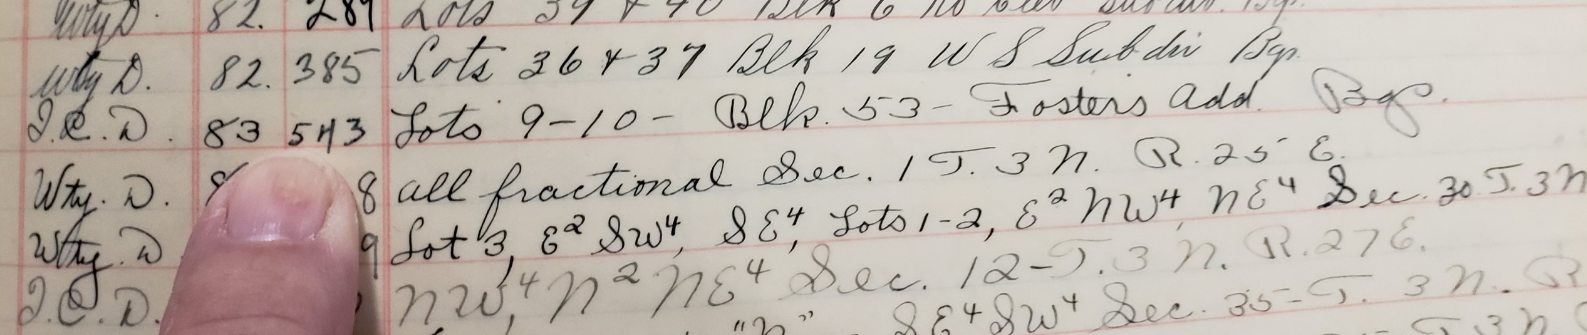 Wty D. 82. 289 Lots 39 & 40 Blk 6
Wty D. 82. 385 Lots 36 & 37 Blk 19 W S Subdiv Bgs.
Q.C.D. 83 543 Lots 9-10- Blk. 53- Fosters Add. Bgs.
Wty. D. 8 8 all fractional Sec. 1 T. 3 N. R. 25 E.
Wty. D 9 Lot 3, E² SW⁴, SE⁴, Lots 1-2, E² NW⁴ NE⁴ Sec. 30 T. 3 N
Q.C.D. NW⁴, N² NE⁴ Sec. 12-T. 3 N. R. 27 E.
SE⁴ SW⁴ Sec. 35-T. 3 N. R